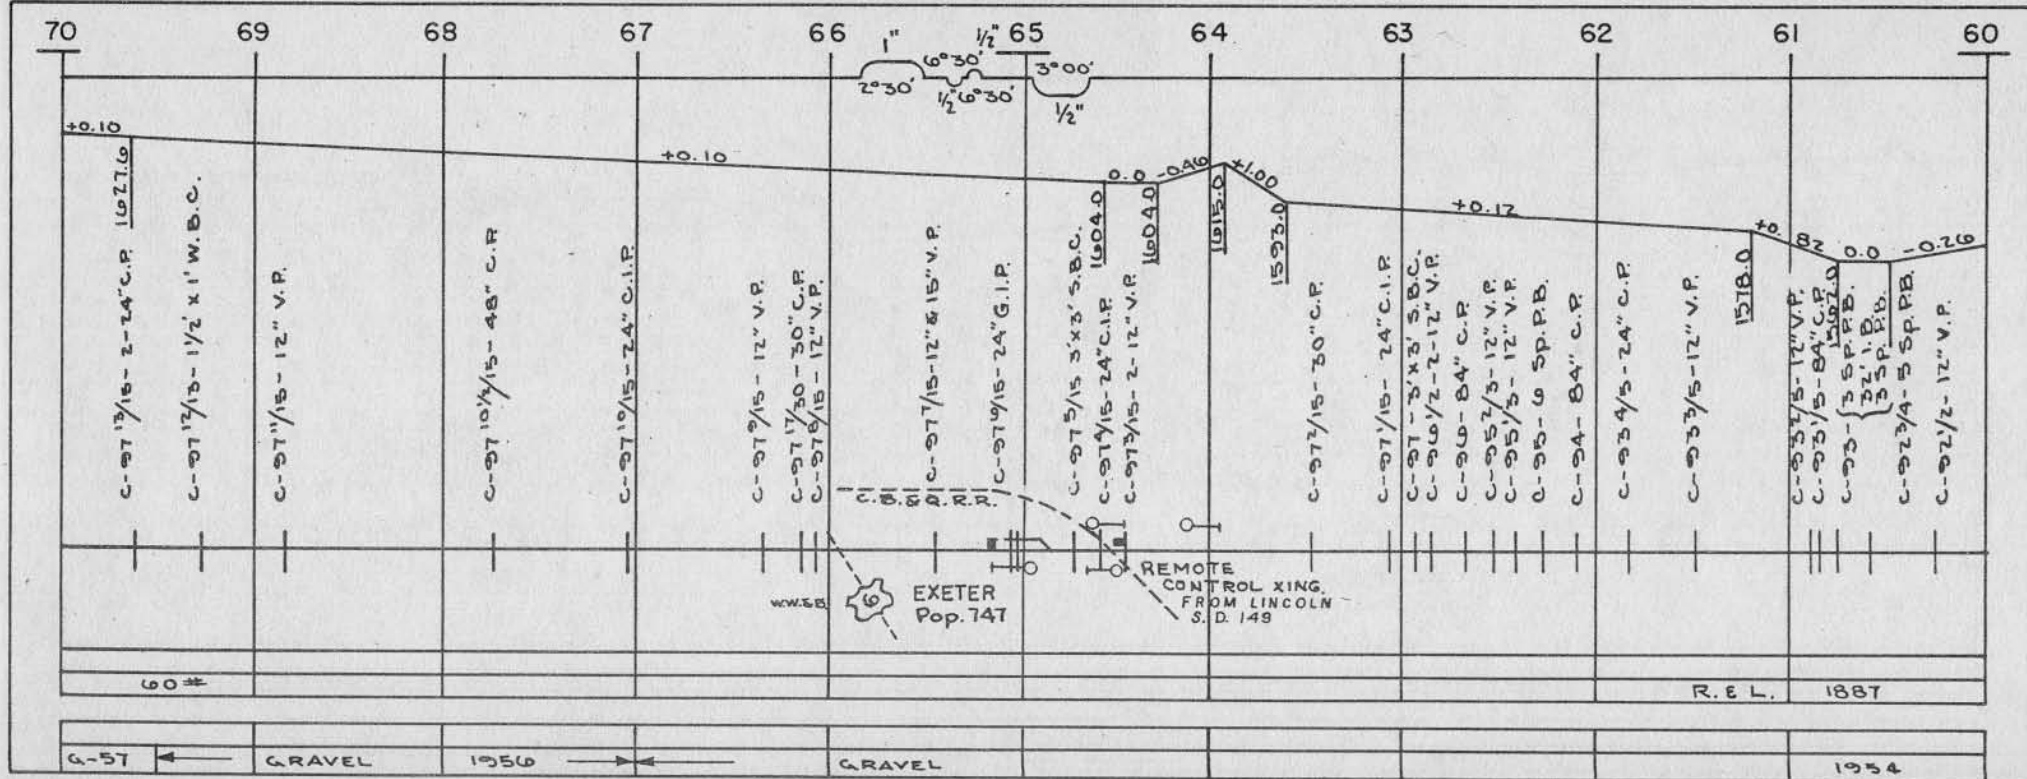 70 69 68 67 66 65 64 63 62 61 60
1" 6°30' 1/2" 3°00'
2°30' 1/2" 6°30' 1/2"
+0.10 +0.10 0.0 -0.46 +1.00 +0.12 +0.82 0.0 -0.26
1627.6
1604.0
1604.0
1615.0
1593.0
1578.0
1567.0
C-97 13/15 - 2-24" C.P.
C-97 12/15 - 1 1/2' x 1' W.B.C.
C-97 11/15 - 12" V.P.
C-97 10 1/2/15 - 48" C.P.
C-97 10/15 - 24" C.I.P.
C-97 9/15 - 12" V.P.
C-97 17/30 - 30" C.P.
C-97 8/15 - 12" V.P.
C-97 7/15 - 12" & 15" V.P.
C-97 6/15 - 24" G.I.P.
C-97 5/15 - 3'x3' S.B.C.
C-97 4/15 - 24" C.I.P.
C-97 3/15 - 2-12" V.P.
C-97 2/15 - 30" C.P.
C-97 1/15 - 24" C.I.P.
C-97 - 3'x3' S.B.C.
C-96 1/2 - 2-12" V.P.
C-96 - 84" C.P.
C-95 2/3 - 12" V.P.
C-95 1/3 - 12" V.P.
C-95 - 6 Sp. P.B.
C-94 - 84" C.P.
C-93 4/5 - 24" C.P.
C-93 3/5 - 12" V.P.
C-93 2/5 - 12" V.P.
C-93 1/5 - 84" C.P.
C-93 - 3 SP. P.B.
32' I.B.
3 SP. P.B.
C-92 3/4 - 5 SP. P.B.
C-92 1/2 - 12" V.P.
C.B.&Q.R.R.
W.W.&B.
6
EXETER
Pop. 747
REMOTE
CONTROL XING.
FROM LINCOLN
S.D. 149
60# R. & L. 1887
G-57 GRAVEL 1956 GRAVEL 1954